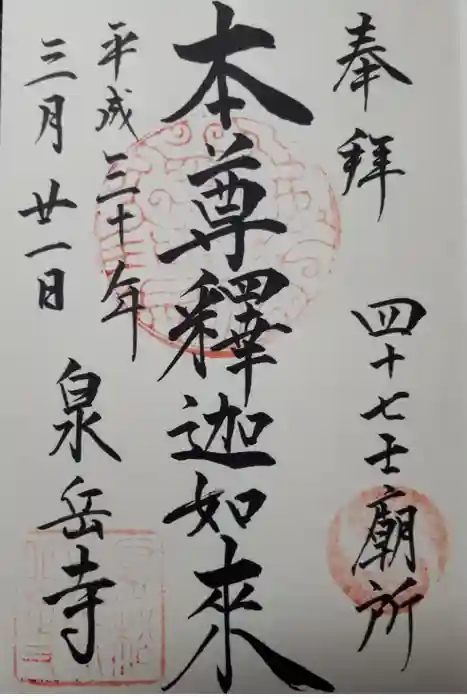 奉拝 四十七士廟所
本尊釋迦如來
平成三十年
三月廿一日 泉岳寺